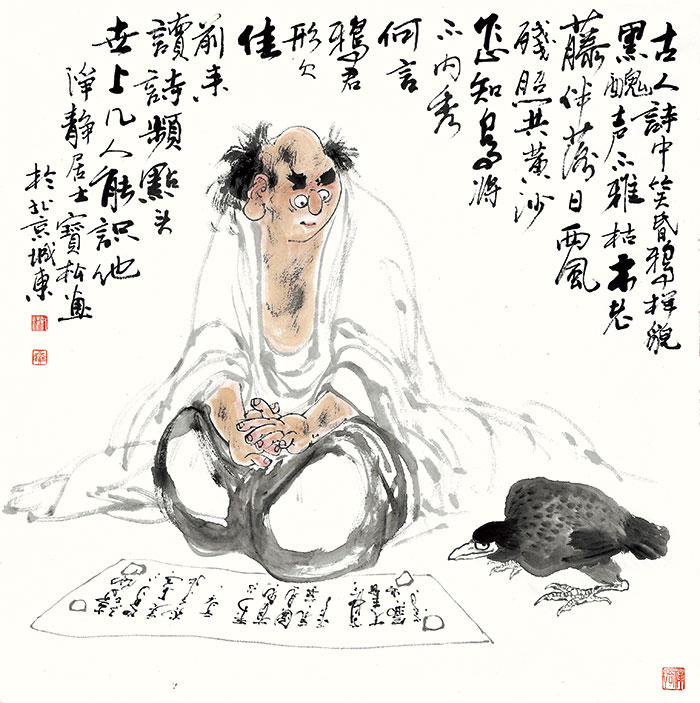 古人詩中笑昏鴉樣貌
黑醜声不雅枯木老
藤伴落日西風
殘照共黄沙
怎知烏将
不内秀
何言
鴉君
形欠
佳
前来
讀詩頻點头
世上几人能識他
淨靜居士寶松畫
於北京城東